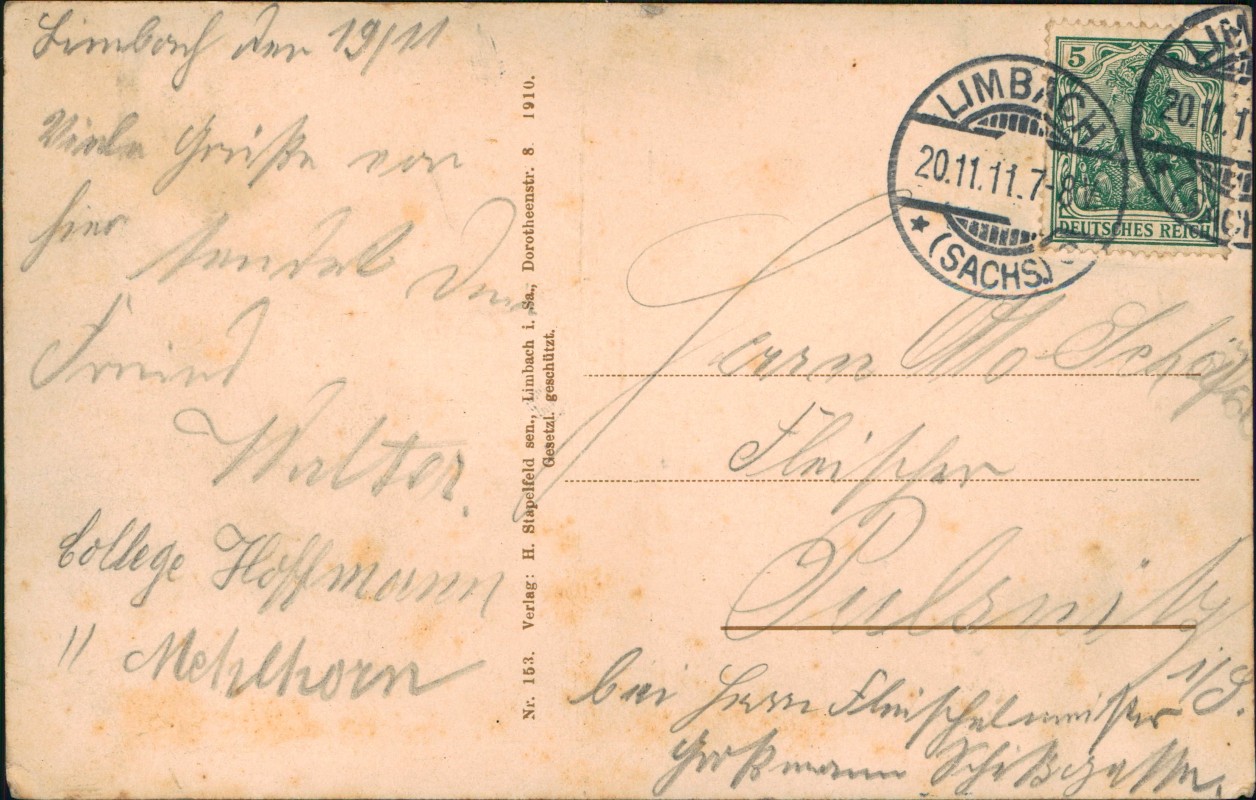 Limbach den 19/11
Viele Grüße von
hier sendet Dein
Freund
Walter.
College Hoffmann
" Mehlhorn
Nr. 153. Verlag: H. Stapelfeld sen., Limbach i. Sa., Dorotheenstr. 8 1910.
Gesetzl. geschützt.
LIMBACH
20.11.11.7-8
(SACHS.)
5
DEUTSCHES REICH
LIM
20.11.1
Herrn
Fleischer
Pulsnitz
i/S.
bei Herrn Fleischermeister
Großmann